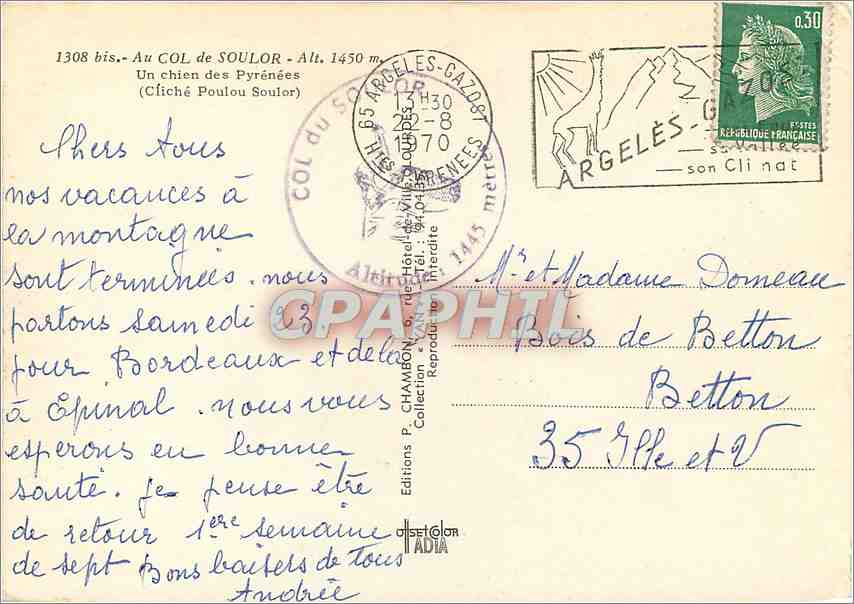 1308 bis.- Au COL de SOULOR - Alt. 1450 m.
Un chien des Pyrénées
(Cliché Poulou Soulor)
COL du SOULOR
Altitude : 1445 mètres
65 ARGELES-GAZOST
13H30
22-8
1970
HTES PYRENEES
ARGELÈS-GAZOST
sa Vallée
son Climat
0,30
POSTES
REPUBLIQUE FRANÇAISE
Chers tous
nos vacances à
la montagne
sont terminées. nous
partons samedi 23.
pour Bordeaux et de là
à Epinal. nous vous
esperons en bonne
santé. je pense être
de retour 1ere semaine
de sept Bons baisers de tous
Andrée
Editions P. CHAMBON, 6, rue Hôtel-de-Ville, LOURDES
Collection "YVAN" - Tél. : 94.04
Reproduction interdite
OFFSETCOLOR
IADIA
CPAPHIL
Mr et Madame Domeau
Bois de Betton
Betton
35 Ille et V